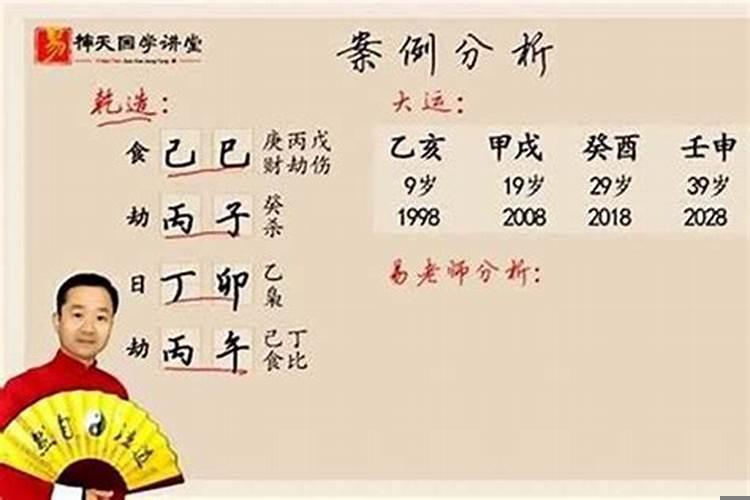 易 神天国学讲堂
案例分析
乾造：
食 己巳 庚丙戊
财劫伤
劫 丙子 癸
杀
日 丁卯 乙
枭
劫 丙午 己丁
食比
大运：
乙亥 甲戌 癸酉 壬申
9岁 19岁 29岁 39岁
1998 2008 2018 2028
易老师分析：
然自法道